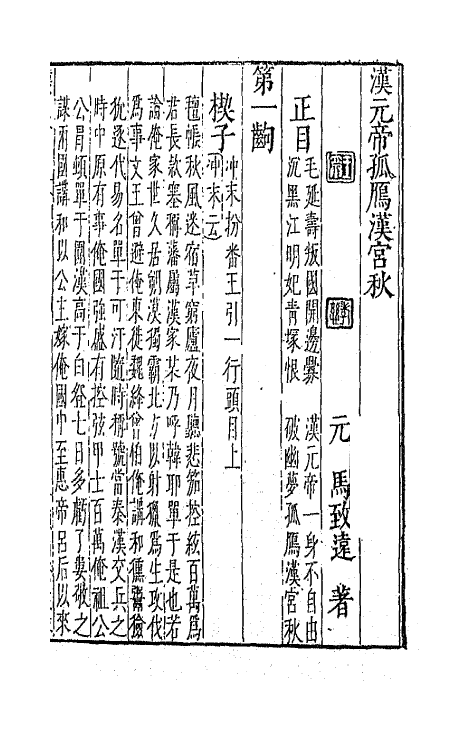 漢元帝孤鴈漢宮秋
元　馬致遠　著
正目
毛延壽叛國開邊釁　漢元帝一身不自由
沉黑江明妃青塚恨　破幽夢孤鴈漢宮秋
第一齣
楔子　冲末扮番王引一行頭目上
冲末云
氊帳秋風迷宿草穹廬夜月聽悲笳控弦百萬爲
君長款塞稱藩屬漢家某乃呼韓耶單于是也若
論俺家世久居朔漠獨霸北方以射獵爲生攻伐
爲事文王曾避俺東徙魏絳曾怕俺講和獯鬻獫
狁逐代易名單于可汗隨時稱號當秦漢交兵之
時中原有事俺國強盛有控弦甲士百萬俺祖公
公冒頓單于圍漢高于白登七日多虧了婁敬之
謀兩國講和以公主嫁俺國中至惠帝呂后以來